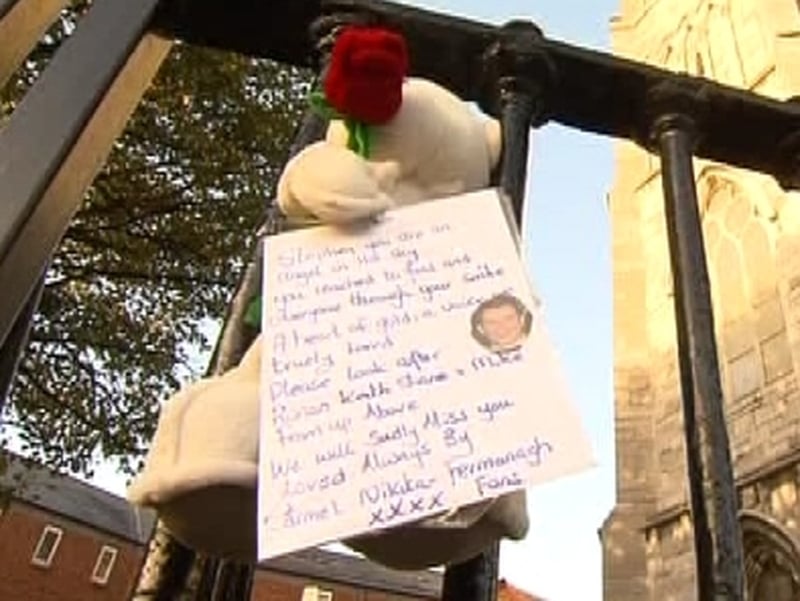 Stephen you are an
angel in the sky
you reached to fans and
everyone through your smile
A heart of gold, a voice
truely loved
Please look after
Ronan Keith Shane & Mike
from up Above
We will Sadly Miss you
Loved Always By
Nikita Fermanagh
xxxx Fans